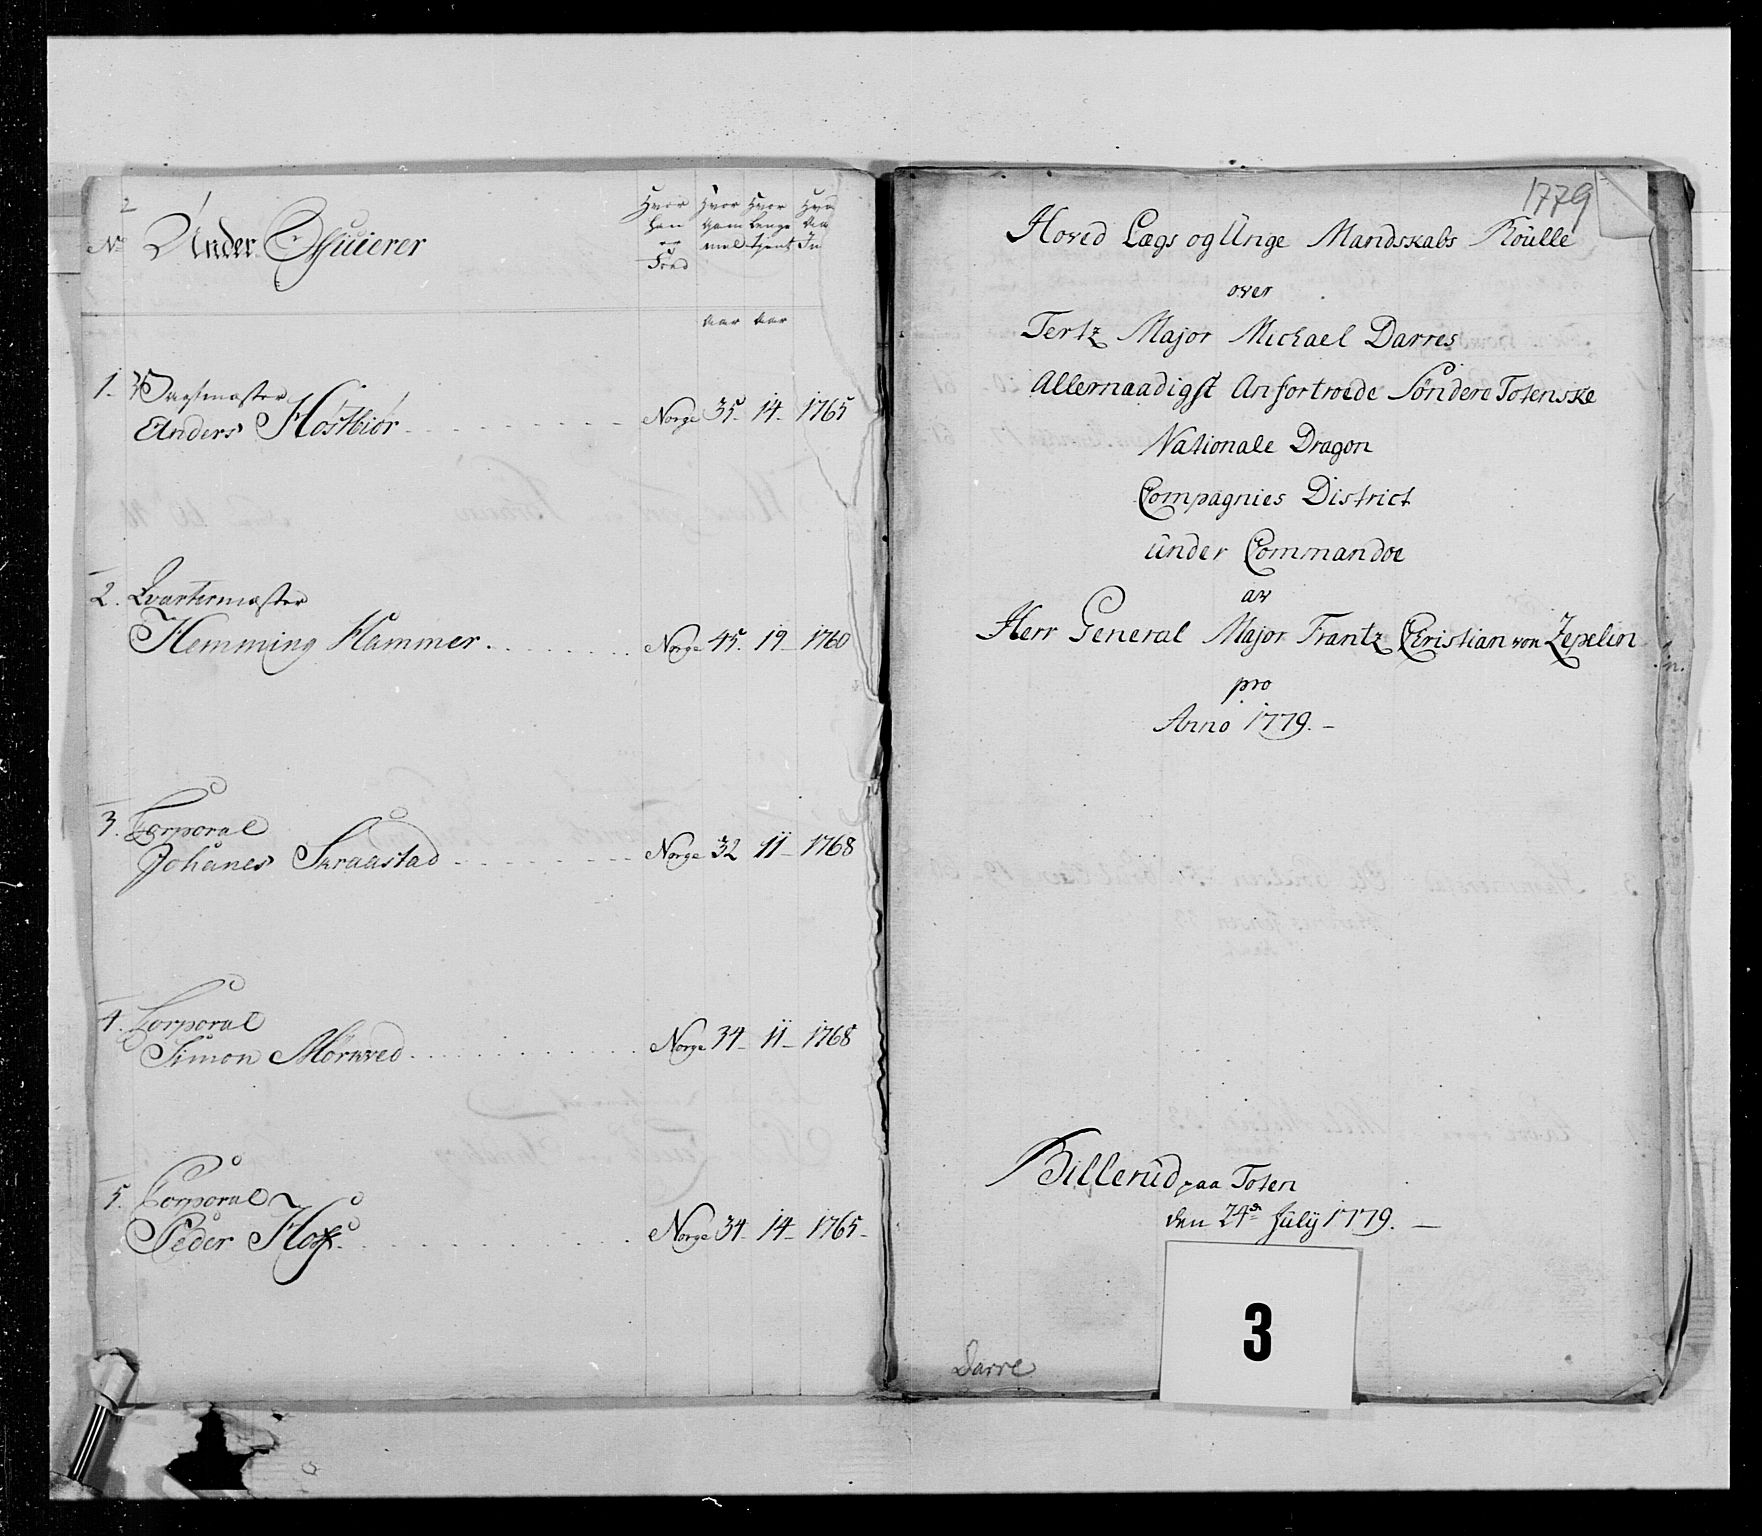 2
No
Under Officierer
Hvor han er Fød
Hvor gammel
Hvor lenge tjent
aar aar
1. Vagtmæster
Anders Høstbiör
Norge 35. 14. 1765
2. Qvartermæster
Hemming Hammer.
Norge 45. 19. 1760
3. Corporal
Johanes Skraastad
Norge 32 11 1768
4. Corporal
Simon Mørkved
Norge 34 11 1768
5. Corporal
Peder Hof.
Norge 34 14 1765
1779
Hoved Lægs og Unge Mandskabs Roulle
over
Tertz Major Michael Darres
Allernaadigst Anfortroede Søndere Totenske
Nationale Dragon
Compagnies District
under Commandoe
av
Herr General Major Frantz Christian von Zepelin
pro
Anno 1779.
Billerud paa Toten
den 24de July 1779.
3
Darre